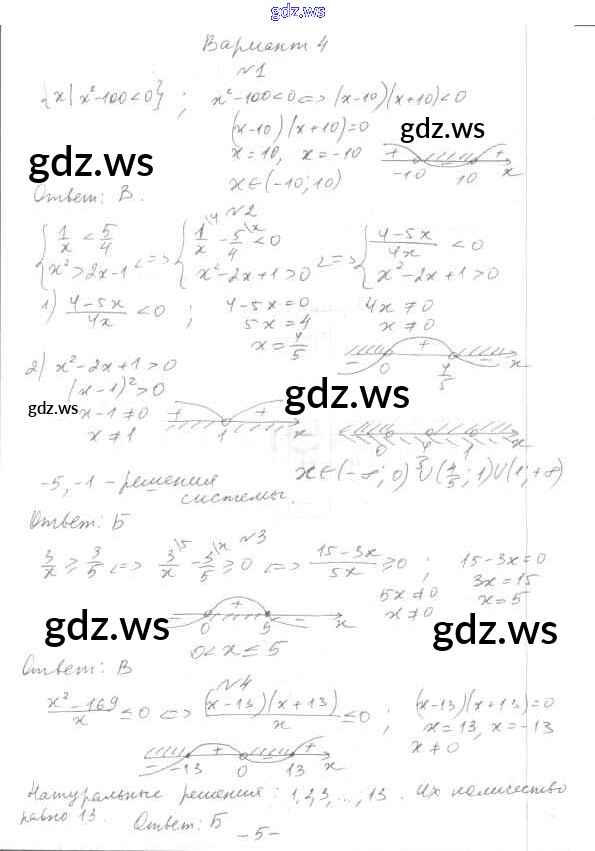 gdz.ws
Вариант 4
№1
{x | x²-100<0} ; x²-100<0 <=> (x-10)(x+10)<0
(x-10)(x+10)=0
x=10, x=-10
x∈(-10; 10)
+ - + -10 10 x
gdz.ws
gdz.ws
Ответ: В.
№2
{1/x < 5/4, x²>2x-1 <=> {1/x - 5/4 < 0, x²-2x+1>0 <=> {(4-5x)/4x < 0, x²-2x+1>0
1) (4-5x)/4x < 0 ; 4-5x=0 4x≠0
5x=4 x≠0
x=4/5
- + - 0 4/5 x
2) x²-2x+1>0
(x-1)²>0
x-1≠0
x≠1
+ + 1 x
gdz.ws
gdz.ws
0 4/5 1 x
x∈(-∞; 0)∪(4/5; 1)∪(1; +∞)
-5, -1 - решения
системы.
Ответ: Б
№3
3/x ≥ 3/5 <=> 3/x - 3/5 ≥ 0 <=> (15-3x)/5x ≥ 0 ; 15-3x=0
3x=15
5x≠0 x=5
x≠0
- + - 0 5 x
0<x≤5
gdz.ws
gdz.ws
Ответ: В
№4
(x²-169)/x ≤ 0 <=> (x-13)(x+13)/x ≤ 0 ; (x-13)(x+13)=0
x=13, x=-13
x≠0
- + - + -13 0 13 x
Натуральные решения: 1,2,3,...,13. Их количество
равно 13. Ответ: Б
-5-
gdz.ws